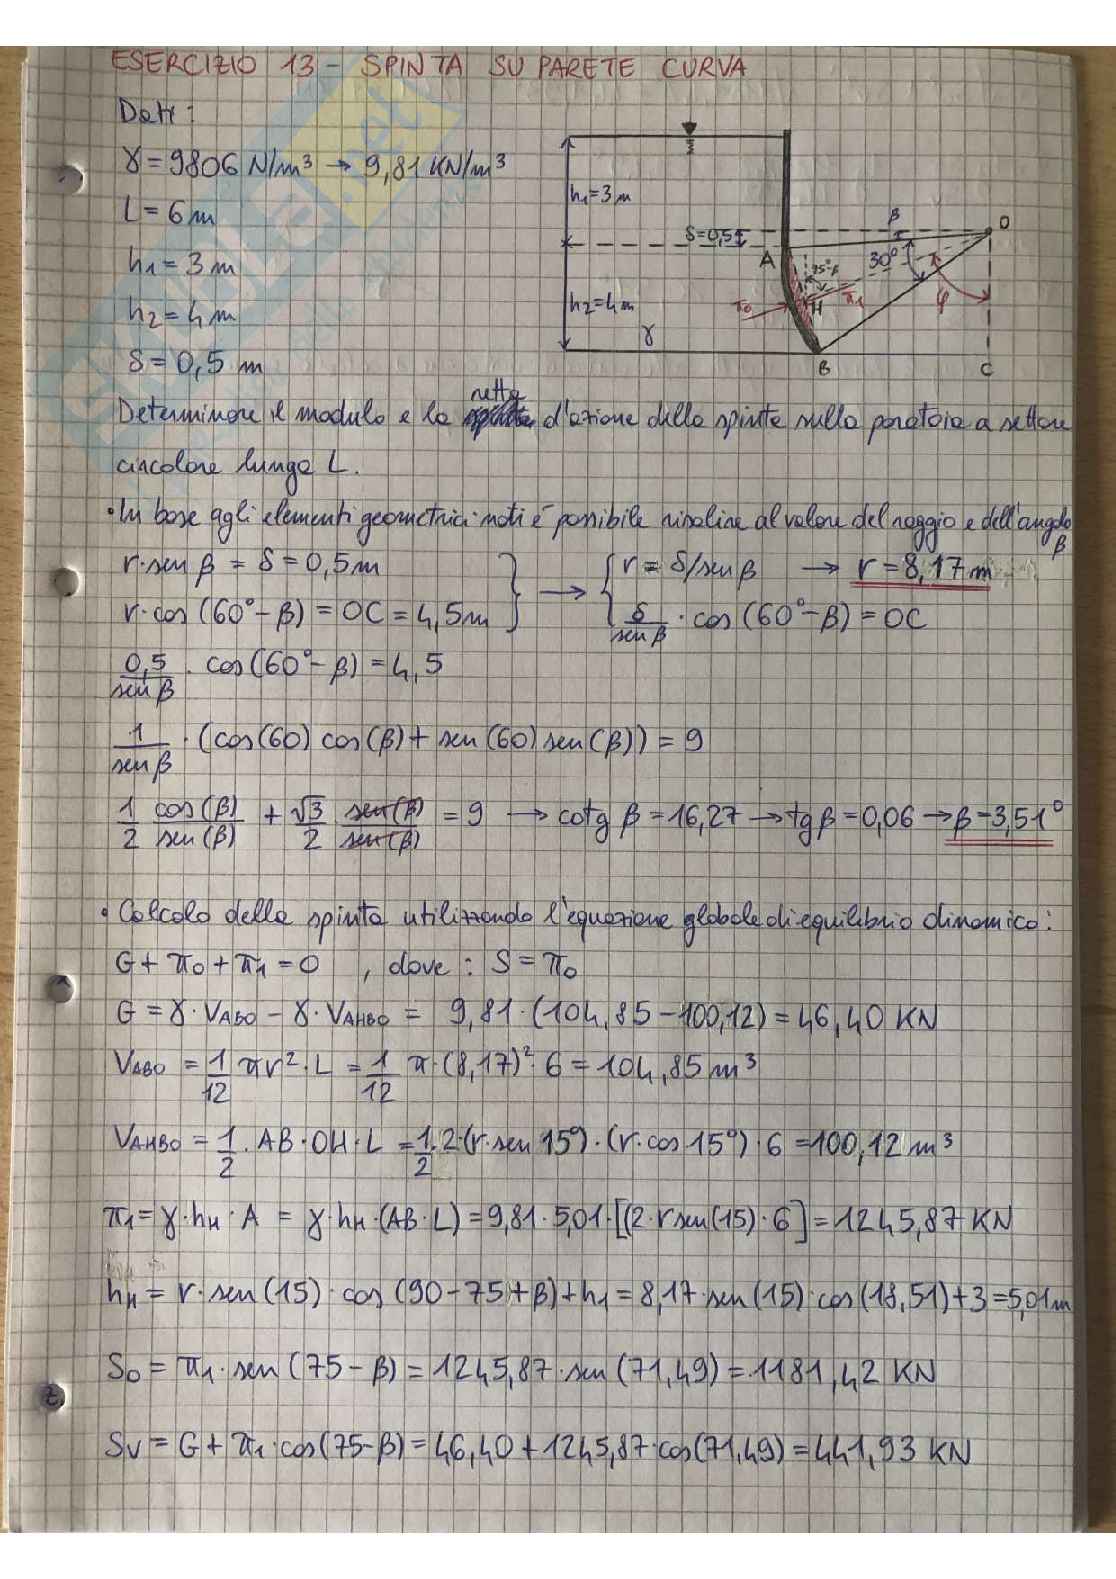 ESERCIZIO 13 - SPINTA SU PARETE CURVA
Dati:
γ = 9806 N/m³ → 9,81 KN/m³
L = 6 m
h1 = 3 m
h2 = 4 m
δ = 0,5 m
h1 = 3 m
δ = 0,5
β
O
A
30°
75°-β
h2 = 4 m
π0
H
π1
φ
γ
B
C
Determinare il modulo e la retta d'azione della spinta sulla paratoia a settore
circolare lunga L.
• In base agli elementi geometrici noti è possibile risalire al valore del raggio e dell'angolo β
r·sen β = δ = 0,5m → r = δ/sen β → r = 8,17 m
r·cos (60°-β) = OC = 4,5m δ/sen β · cos (60°-β) = OC
0,5/sen β · cos (60°-β) = 4,5
1/sen β · (cos(60) cos(β) + sen (60) sen (β)) = 9
1/2 cos(β)/sen(β) + √3/2 sen(β)/sen(β) = 9 → cotg β = 16,27 → tg β = 0,06 → β = 3,51°
• Calcolo della spinta utilizzando l'equazione globale di equilibrio dinamico:
G + π0 + π1 = 0 , dove : S = π0
G = γ · VABO - γ · VAHBO = 9,81 · (104,85 - 100,12) = 46,40 KN
VABO = 1/12 π r² · L = 1/12 π · (8,17)² · 6 = 104,85 m³
VAHBO = 1/2 · AB · OH · L = 1/2 · 2 · (r · sen 15°) · (r · cos 15°) · 6 = 100,12 m³
π1 = γ · hH · A = γ · hH · (AB · L) = 9,81 · 5,01 · [(2 · r sen(15) · 6] = 1245,87 KN
hH = r · sen (15) · cos (90 - 75 + β) + h1 = 8,17 · sen (15) · cos (18,51) + 3 = 5,01 m
SO = π1 · sen (75 - β) = 1245,87 · sen (71,49) = 1181,42 KN
SV = G + π1 · cos (75 - β) = 46,40 + 1245,87 · cos (71,49) = 441,93 KN